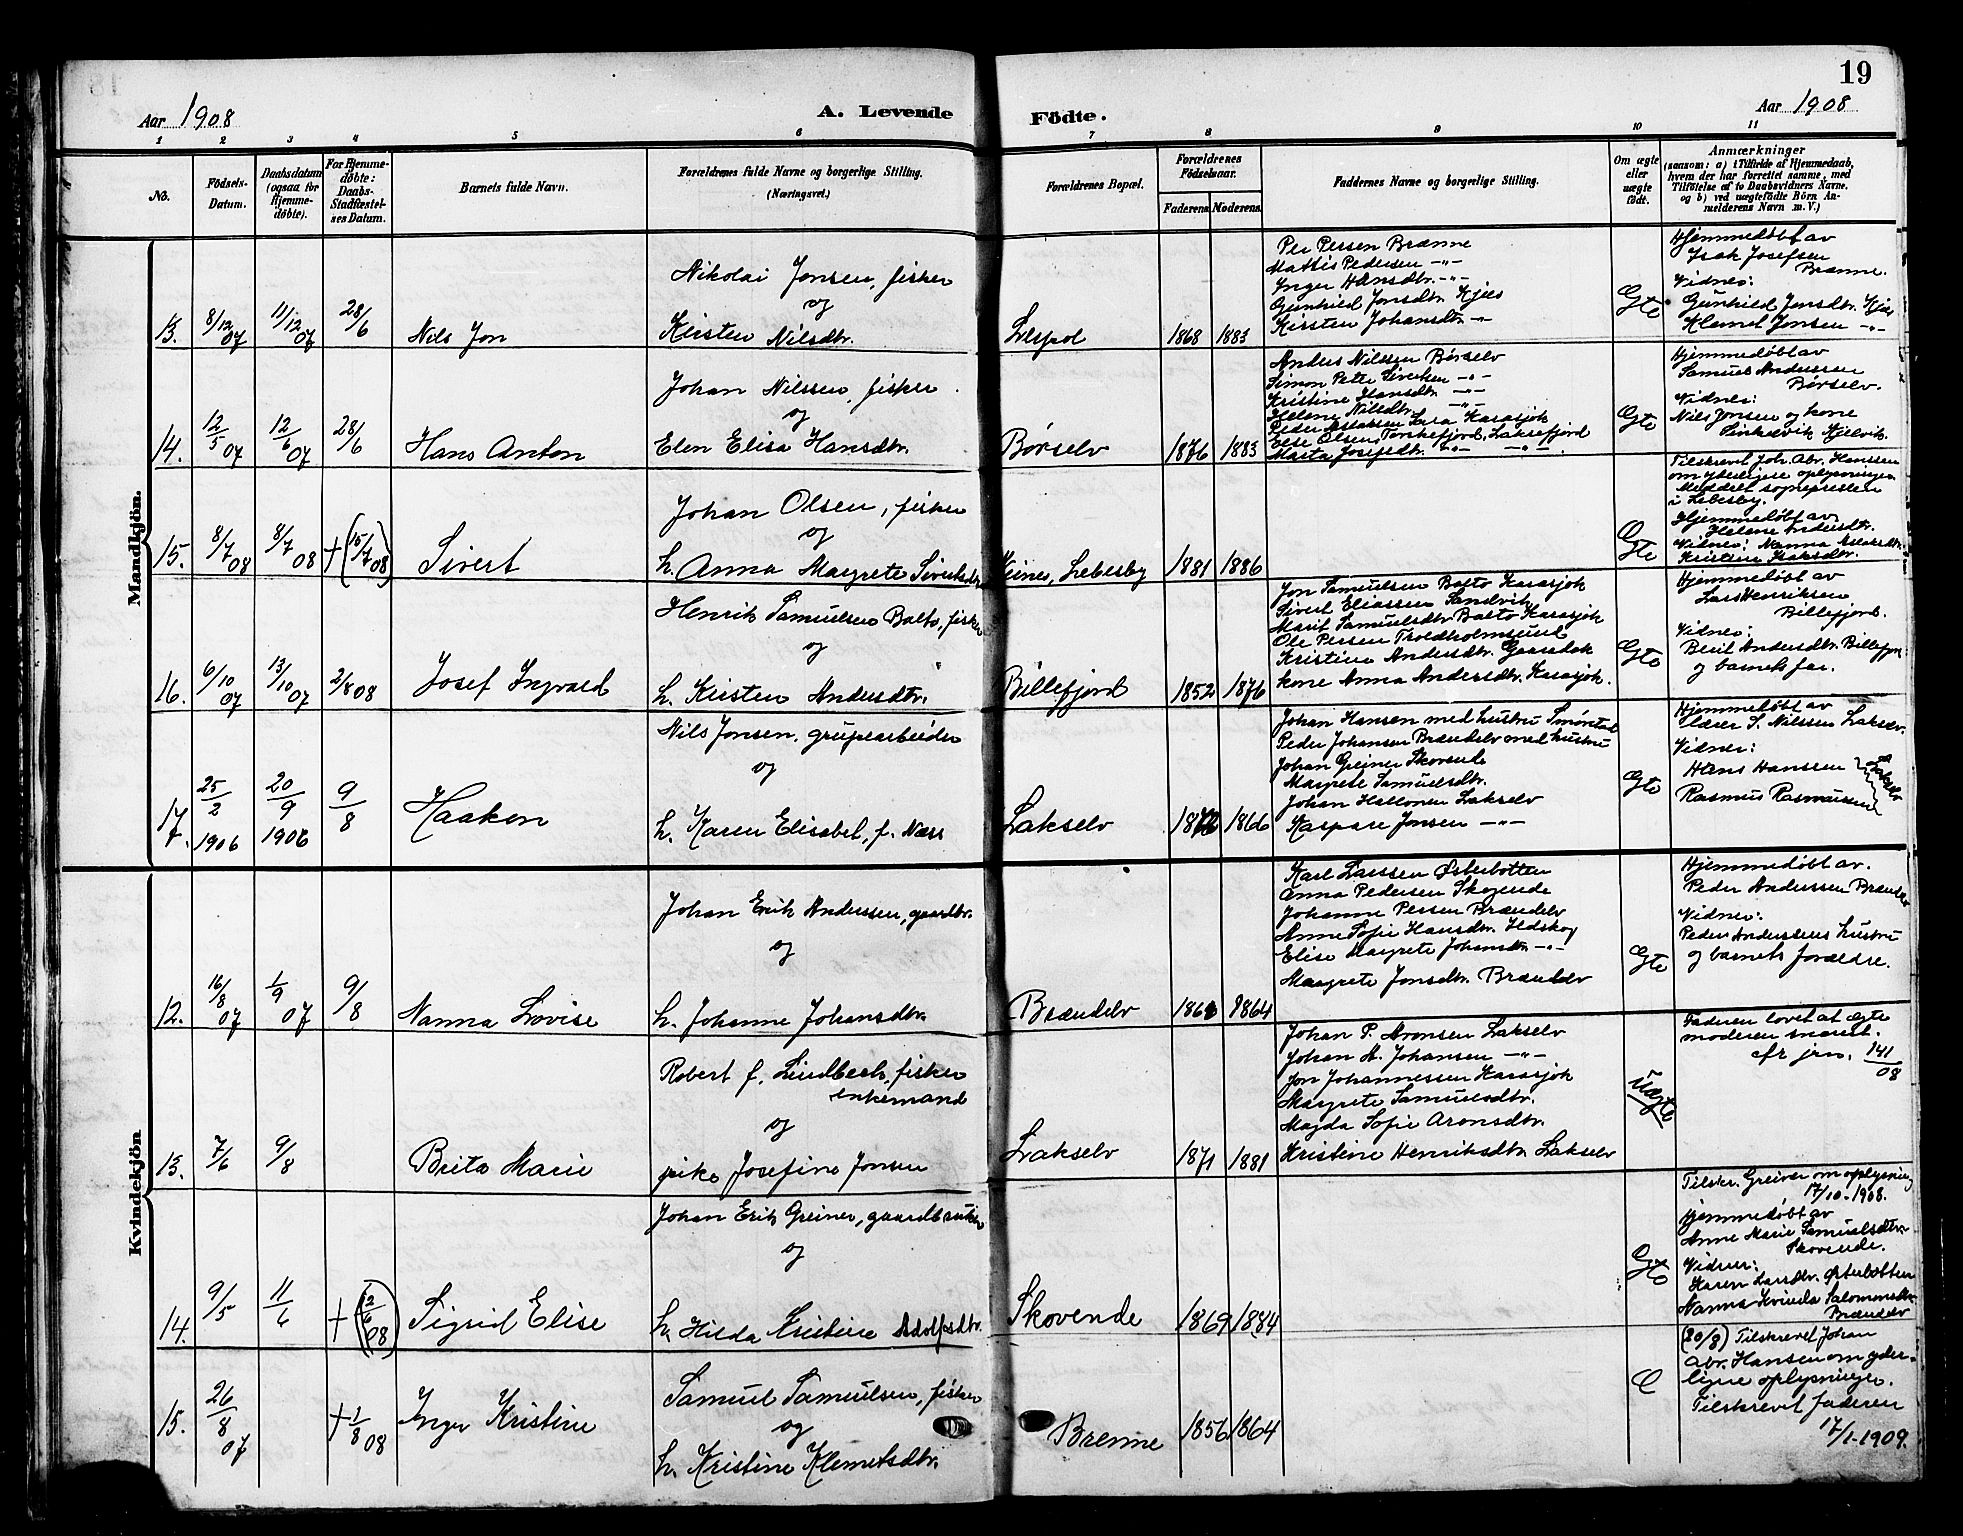 19
Aar 1908
A. Levende
Födte.
Aar 1908
1 2 3 4 5 6 7 8 9 10 11
No.
Födsels-
Datum.
Daabsdatum
(ogsaa for
Hjemme-
döbte).
For Hjemme-
döbte:
Daabs-
Stadfæstel-
ses Datum.
Barnets fulde Navn.
Forældrenes fulde Navne og borgerlige Stilling.
(Næringsvei.)
Forældrenes Bopæl.
Forældrenes
Födselsaar.
Faderens. Moderens.
Faddernes Navne og borgerlige Stilling.
Om ægte
eller
uægte
födt.
Anmærkninger
(saasom: a) i Tilfælde af Hjemmedaab,
hvem der har forrettet samme, med
Tilföielse af to Daabsvidners Navne,
og b) ved uægtefödte Börn An-
melderens Navn m.V.)
Mandkjön.
13.
8/12 07
11/12 07
28/6
Nils Jon
Nikolai Jonsen, fisker
og
Kirsten Nilsdtr.
1868 1883
Per Persen Brænne
Mattis Pedersen -"-
Inger Hansdtr. -"-
Gunhild Jonsdtr. Kjæs
Kirsten Johansdtr. -"-
Ægte
Hjemmedøbt av
Isak Josefsen
Brænne.
Vidner:
Gunhild Jonsdtr. Kjæs
Klemet Jonsen -"-
14.
12/5 07
12/6 07
28/6
Hans Anton
Johan Nilssen, fisker
og
Elen Elisa Hansdtr.
Børselv
1876 1883
Anders Nilssen Børselv
Simon Peter Sivertsen -"-
Kristine Hansdtr. -"-
Helene Nilsdtr. -"-
Peder Aslaksen Sara Karasjok
Else Olsen, Torskefjord, Laksefjord
Marta Josefsdtr. -"- -"-
Ægte
Hjemmedøbt av
Samuel Anderssen
Børselv.
Vidner:
Nils Jonsen og kone
Kjelvik.
15.
8/7 08
8/7 08
+ (15/7 08)
Sivert
Johan Olsen, fisker
og
h. Anna Margrete Sivertsdtr.
Veines, Lebesby
1881 1886
Ægte
Tilskrevet Joh. Abr. Hanssen
om yderligere oplysninger.
Meddelt sognepresten
i Lebesby.
Hjemmedøbt av
Helene Andersdtr.
Vidner: Nanna Aslaksdtr.
Kristine Isaksdtr.
16.
6/10 07
13/10 07
2/8 08
Josef Ingvald
Henrik Samuelsen Balto, fisker
og
h. Kirsten Andersdtr.
Billefjord
1852 1876
Jon Samuelsen Balto Karasjok
Sivert Eliassen Sandvik
Marit Samuelsdtr. Balto Karasjok
Ole Persen Troldholmsund
Kristine Andersdtr.
kone Anna Andersdtr. Karasjok.
Ægte
Hjemmedøbt av
Lars Henriksen
Billefjord.
Vidner:
Berit Andersdtr. Billefjord
og barnets far.
17.
25/2 1906
20/9 1906
9/8
Haakon
Nils Jonsen, grubearbeider
og
h. Karen Elisabet, f. Næss
Lakselv
1866
Johan Hansen med hustru Smørstad
Peder Johansen Brændelv med hustru
Johan Greiner Skovende
Margrete Samuelsdtr.
Johan Hallonen Lakselv
Kaspare Jonsen -"-
Ægte
Hjemmedøbt av
lærer S. Nilssen Lakselv.
Vidner:
Hans Hanssen
Rasmus Rasmussen
Lakselv
Kvindekjön
12.
16/8 07
1/9 07
9/8
Nanna Lovise
Johan Erik Anderssen, gaardbr.
og
h. Johanne Johansdtr.
Brændelv
1864
Karl Larssen Østerbotten
Anna Pedersen Skogende
Johanne Persen Brændelv
Anne Sofie Hansdtr. Ildskog
Elise Margrete Johansdtr. -"-
Margrete Jonsdtr. Brændelv
Ægte
Hjemmedøbt av.
Peder Anderssen Brændelv
Vidner:
Peder Anderssens hustru
og barnets forældre.
13.
7/6
9/8
Brita Marie
Robert f. Lindbeck, fisker
enkemand
og
pike Josefine Jonsen
Lakselv
1871 1881
Johan P. Aronsen Lakselv
Johan A. Johansen -"-
Jon Johannessen Karasjok
Margrete Samuelsdtr.
Magda Sofie Aronsdtr.
Kristine Henriksdtr. Lakselv
Uægte
Faderen lovet at ægte
moderen snarest.
cfr jrn. 141/08
14.
9/5
11/6
+ (12/6 08)
Sigrid Elise
Johan Erik Greiner, gaardbruker
og
h. Hilda Kristine Adolfsdtr.
Skovende
1869 1884
Ægte
Tilskr. Greiner om oplysning
17/10-1908.
Hjemmedøbt av
Anne Marie Samuelsdtr.
Skovende.
Vidner:
Karen Larsdtr. Østerbotten
Nanna Kvinda Salomonsdtr.
Brændelv
15.
26/8 07
+ 1/8 08
Inger Kristine
Samuel Samuelsen, fisker
og
h. Kristine Klemetsdtr.
Brenne
1856 1864
(20/8) Tilskrevet Johan
Abr. Hansen om yder-
ligere oplysninger.
Tilskrevet faderen
17/1-1909.